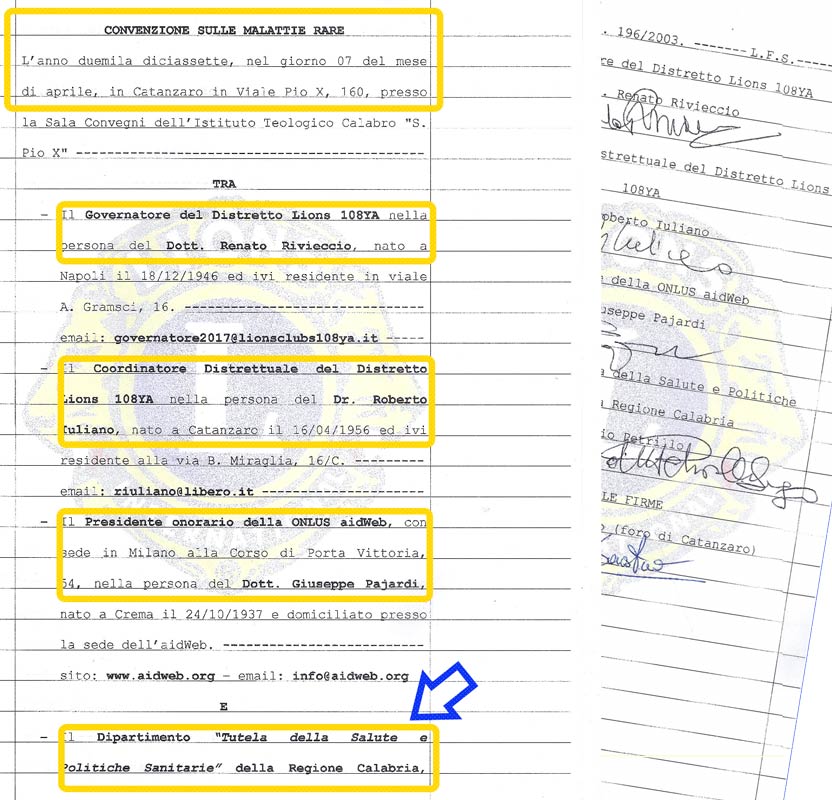 CONVENZIONE SULLE MALATTIE RARE
L'anno duemila diciassette, nel giorno 07 del mese
di aprile, in Catanzaro in Viale Pio X, 160, presso
la Sala Convegni dell'Istituto Teologico Calabro "S.
Pio X" ----------------------------------------------
TRA
– Il Governatore del Distretto Lions 108YA nella
persona del Dott. Renato Rivieccio, nato a
Napoli il 18/12/1946 ed ivi residente in viale
A. Gramsci, 16. --------------------------------
email: governatore2017@lionsclubs108ya.it -----
– Il Coordinatore Distrettuale del Distretto
Lions 108YA nella persona del Dr. Roberto
Iuliano, nato a Catanzaro il 16/04/1956 ed ivi
residente alla via B. Miraglia, 16/C. ----------
email: riuliano@libero.it ----------------------
– Il Presidente onorario della ONLUS aidWeb, con
sede in Milano alla Corso di Porta Vittoria,
54, nella persona del Dott. Giuseppe Pajardi,
nato a Crema il 24/10/1937 e domiciliato presso
la sede dell'aidWeb. ---------------------------
sito: www.aidweb.org – email: info@aidweb.org
E
– Il Dipartimento "Tutela della Salute e
Politiche Sanitarie" della Regione Calabria,
. 196/2003. ------- L.F.S.-----
re del Distretto Lions 108YA
. Renato Rivieccio
strettuale del Distretto Lions
108YA
oberto Iuliano
e della ONLUS aidWeb
useppe Pajardi
a della Salute e Politiche
a Regione Calabria
io Petrillo
LE FIRME
o (foro di Catanzaro)